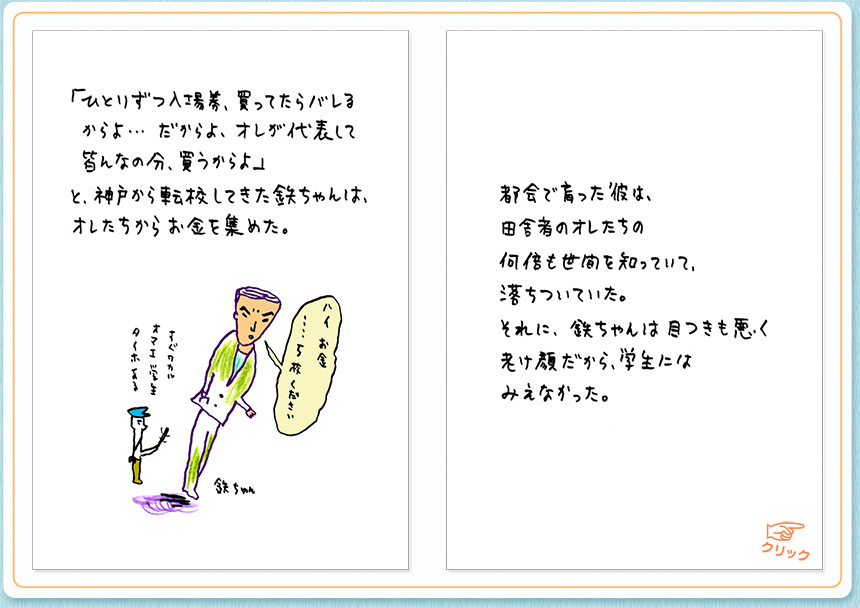 「ひとりずつ入場券、買ってたらバレる
からよ… だからよ、オレが代表して
皆んなの分、買うからよ」
と、神戸から転校してきた鉄ちゃんは、
オレたちからお金を集めた。
ハイ お金
…… 5枚ください
すぐワカル
オマエ学生
タイホする
鉄ちゃん
都会で育った彼は、
田舎者のオレたちの
何倍も世間を知っていて、
落ちついていた。
それに、鉄ちゃんは目つきも悪く
老け顔だから、学生には
みえなかった。
クリック